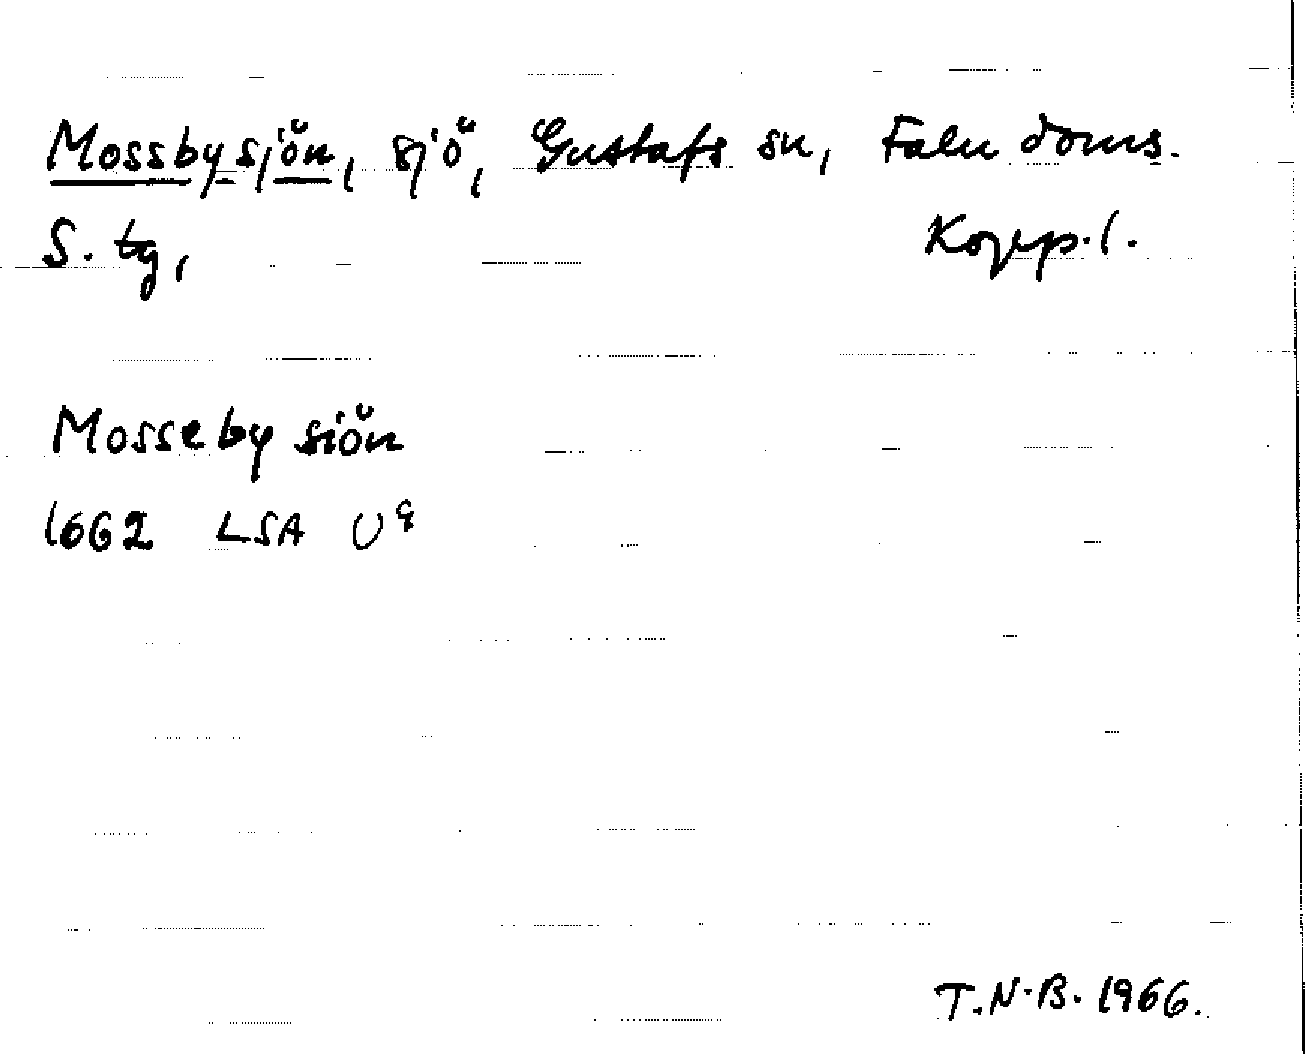 Mossbysjön, sjö, Gustafs sn, Falu doms.
S. tg, Kopp.l.
Mosseby siön
1662 LSA U
T.N.B. 1966.